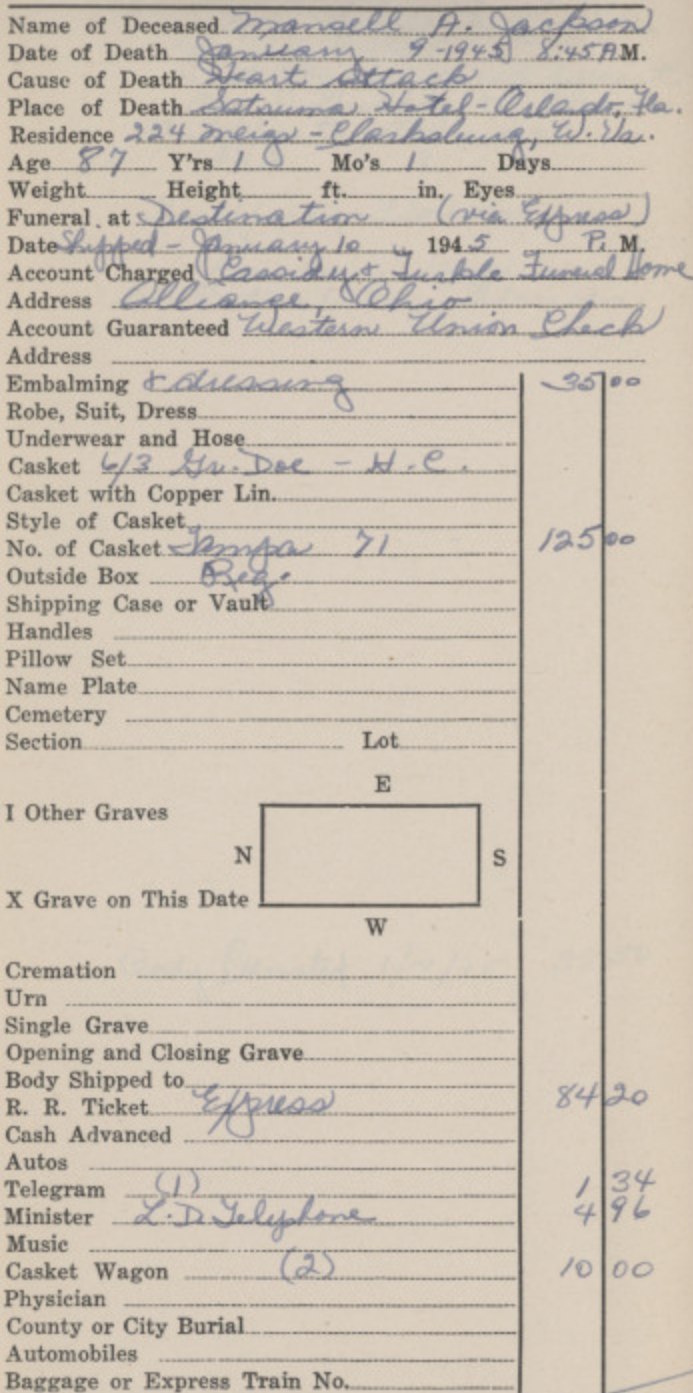 Name of Deceased Mansell A. Jackson
Date of Death January 9-1945 8:45 A.M.
Cause of Death Heart Attack
Place of Death Satsuma Hotel - Orlando, Fla.
Residence 224 Meigs - Clarksburg, W. Va.
Age 87 Y'rs 1 Mo's 1 Days
Weight Height ft. in. Eyes
Funeral at Destination (via Express)
Date Shipped - January 10 1945 P. M.
Account Charged Cassidy & Funeral Home
Address Alliance, Ohio
Account Guaranteed Western Union Check
Address
Embalming & dressing 35 00
Robe, Suit, Dress
Underwear and Hose
Casket 6/3 Gr. Doe - H.C.
Casket with Copper Lin.
Style of Casket
No. of Casket Tampa 71 125 00
Outside Box Reg.
Shipping Case or Vault
Handles
Pillow Set
Name Plate
Cemetery
Section Lot
E
I Other Graves
N S
X Grave on This Date
W
Cremation
Urn
Single Grave
Opening and Closing Grave
Body Shipped to
R. R. Ticket Express 84 20
Cash Advanced
Autos
Telegram (1) 1 34
Minister L.D. Telephone 4 96
Music
Casket Wagon (2) 10 00
Physician
County or City Burial
Automobiles
Baggage or Express Train No.